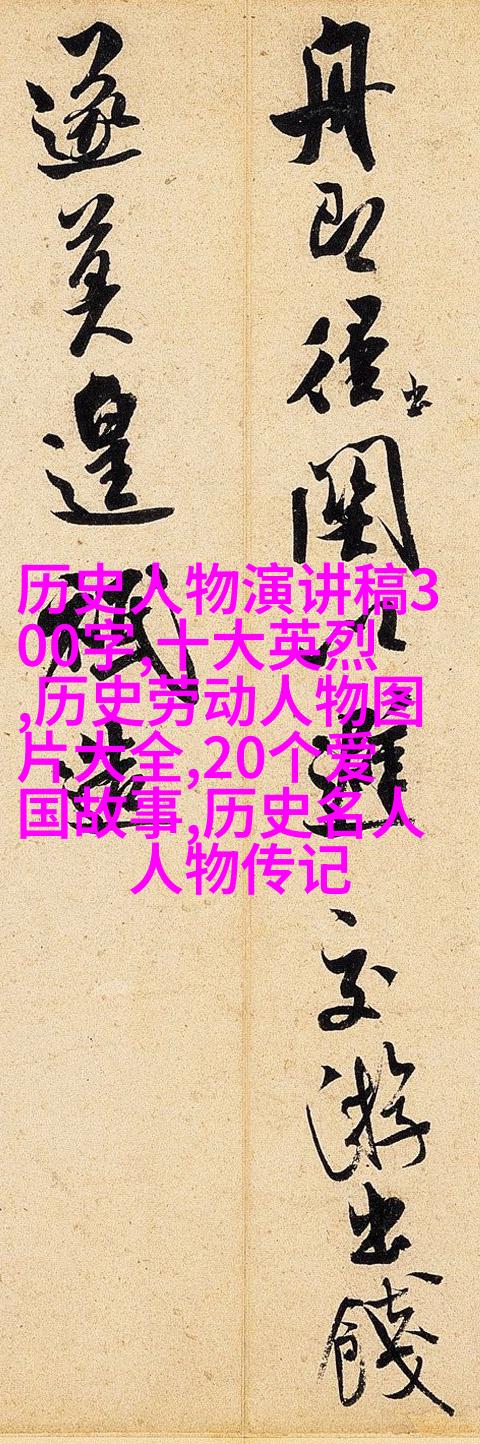 舟即徑出關以避交游出餞
遂莫遑
历史人物演讲稿3
00字,十大英烈
,历史劳动人物图
片大全,20个爱
国故事,历史名人
人物传记